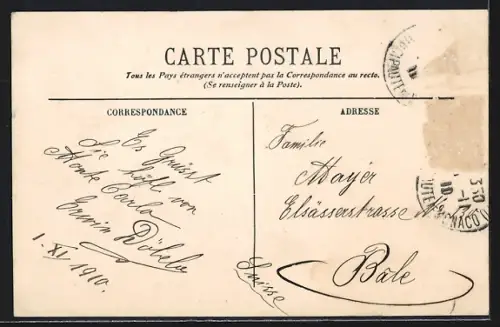 CARTE POSTALE
Tous les Pays étrangers n'acceptent pas la Correspondance au recto.
(Se renseigner à la Poste).
CORRESPONDANCE
Es Grüsst
Sie höfl. von
Monte Carlo
Erwin
1. XI. 1910.
ADRESSE
Familie
Mayer
Elsässerstrasse
Bâle
Suisse
330